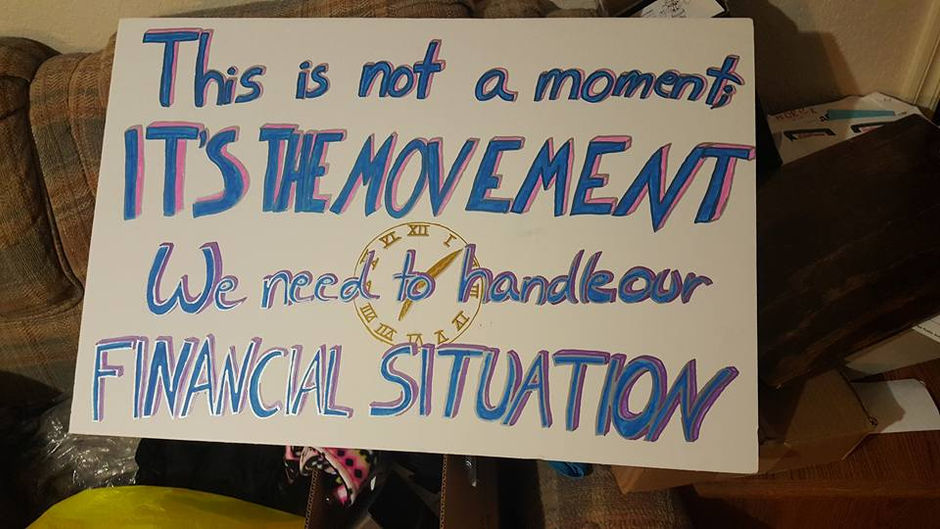 This is not a moment;
IT'S THE MOVEMENT
We need to handle our
FINANCIAL SITUATION